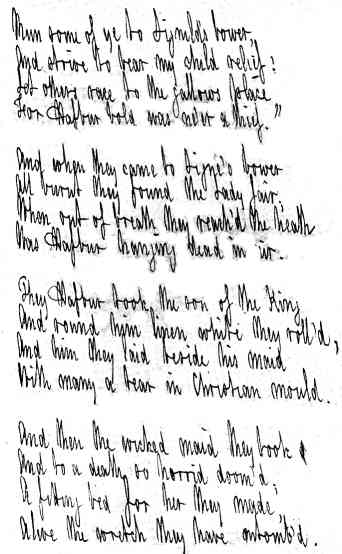 Run some of ye to Signild's bower,
And strive to bear my child relief!
Let others race to the gallows place
For Hafbur bold was never a thief."
And when they came to Signe's bower
All burnt they found the Lady fair;
When out of breath they reach'd the heath
Was Hafbur hanging dead in air.
They Hafbur took, the son of the King
And round him linen white they roll'd,
And him they laid beside his maid
With many a tear in Christian mould.
And then the wicked maid they took
And to a death so horrid doom'd;
A fitting bed for her they made,
Alive the wretch they have entomb'd.